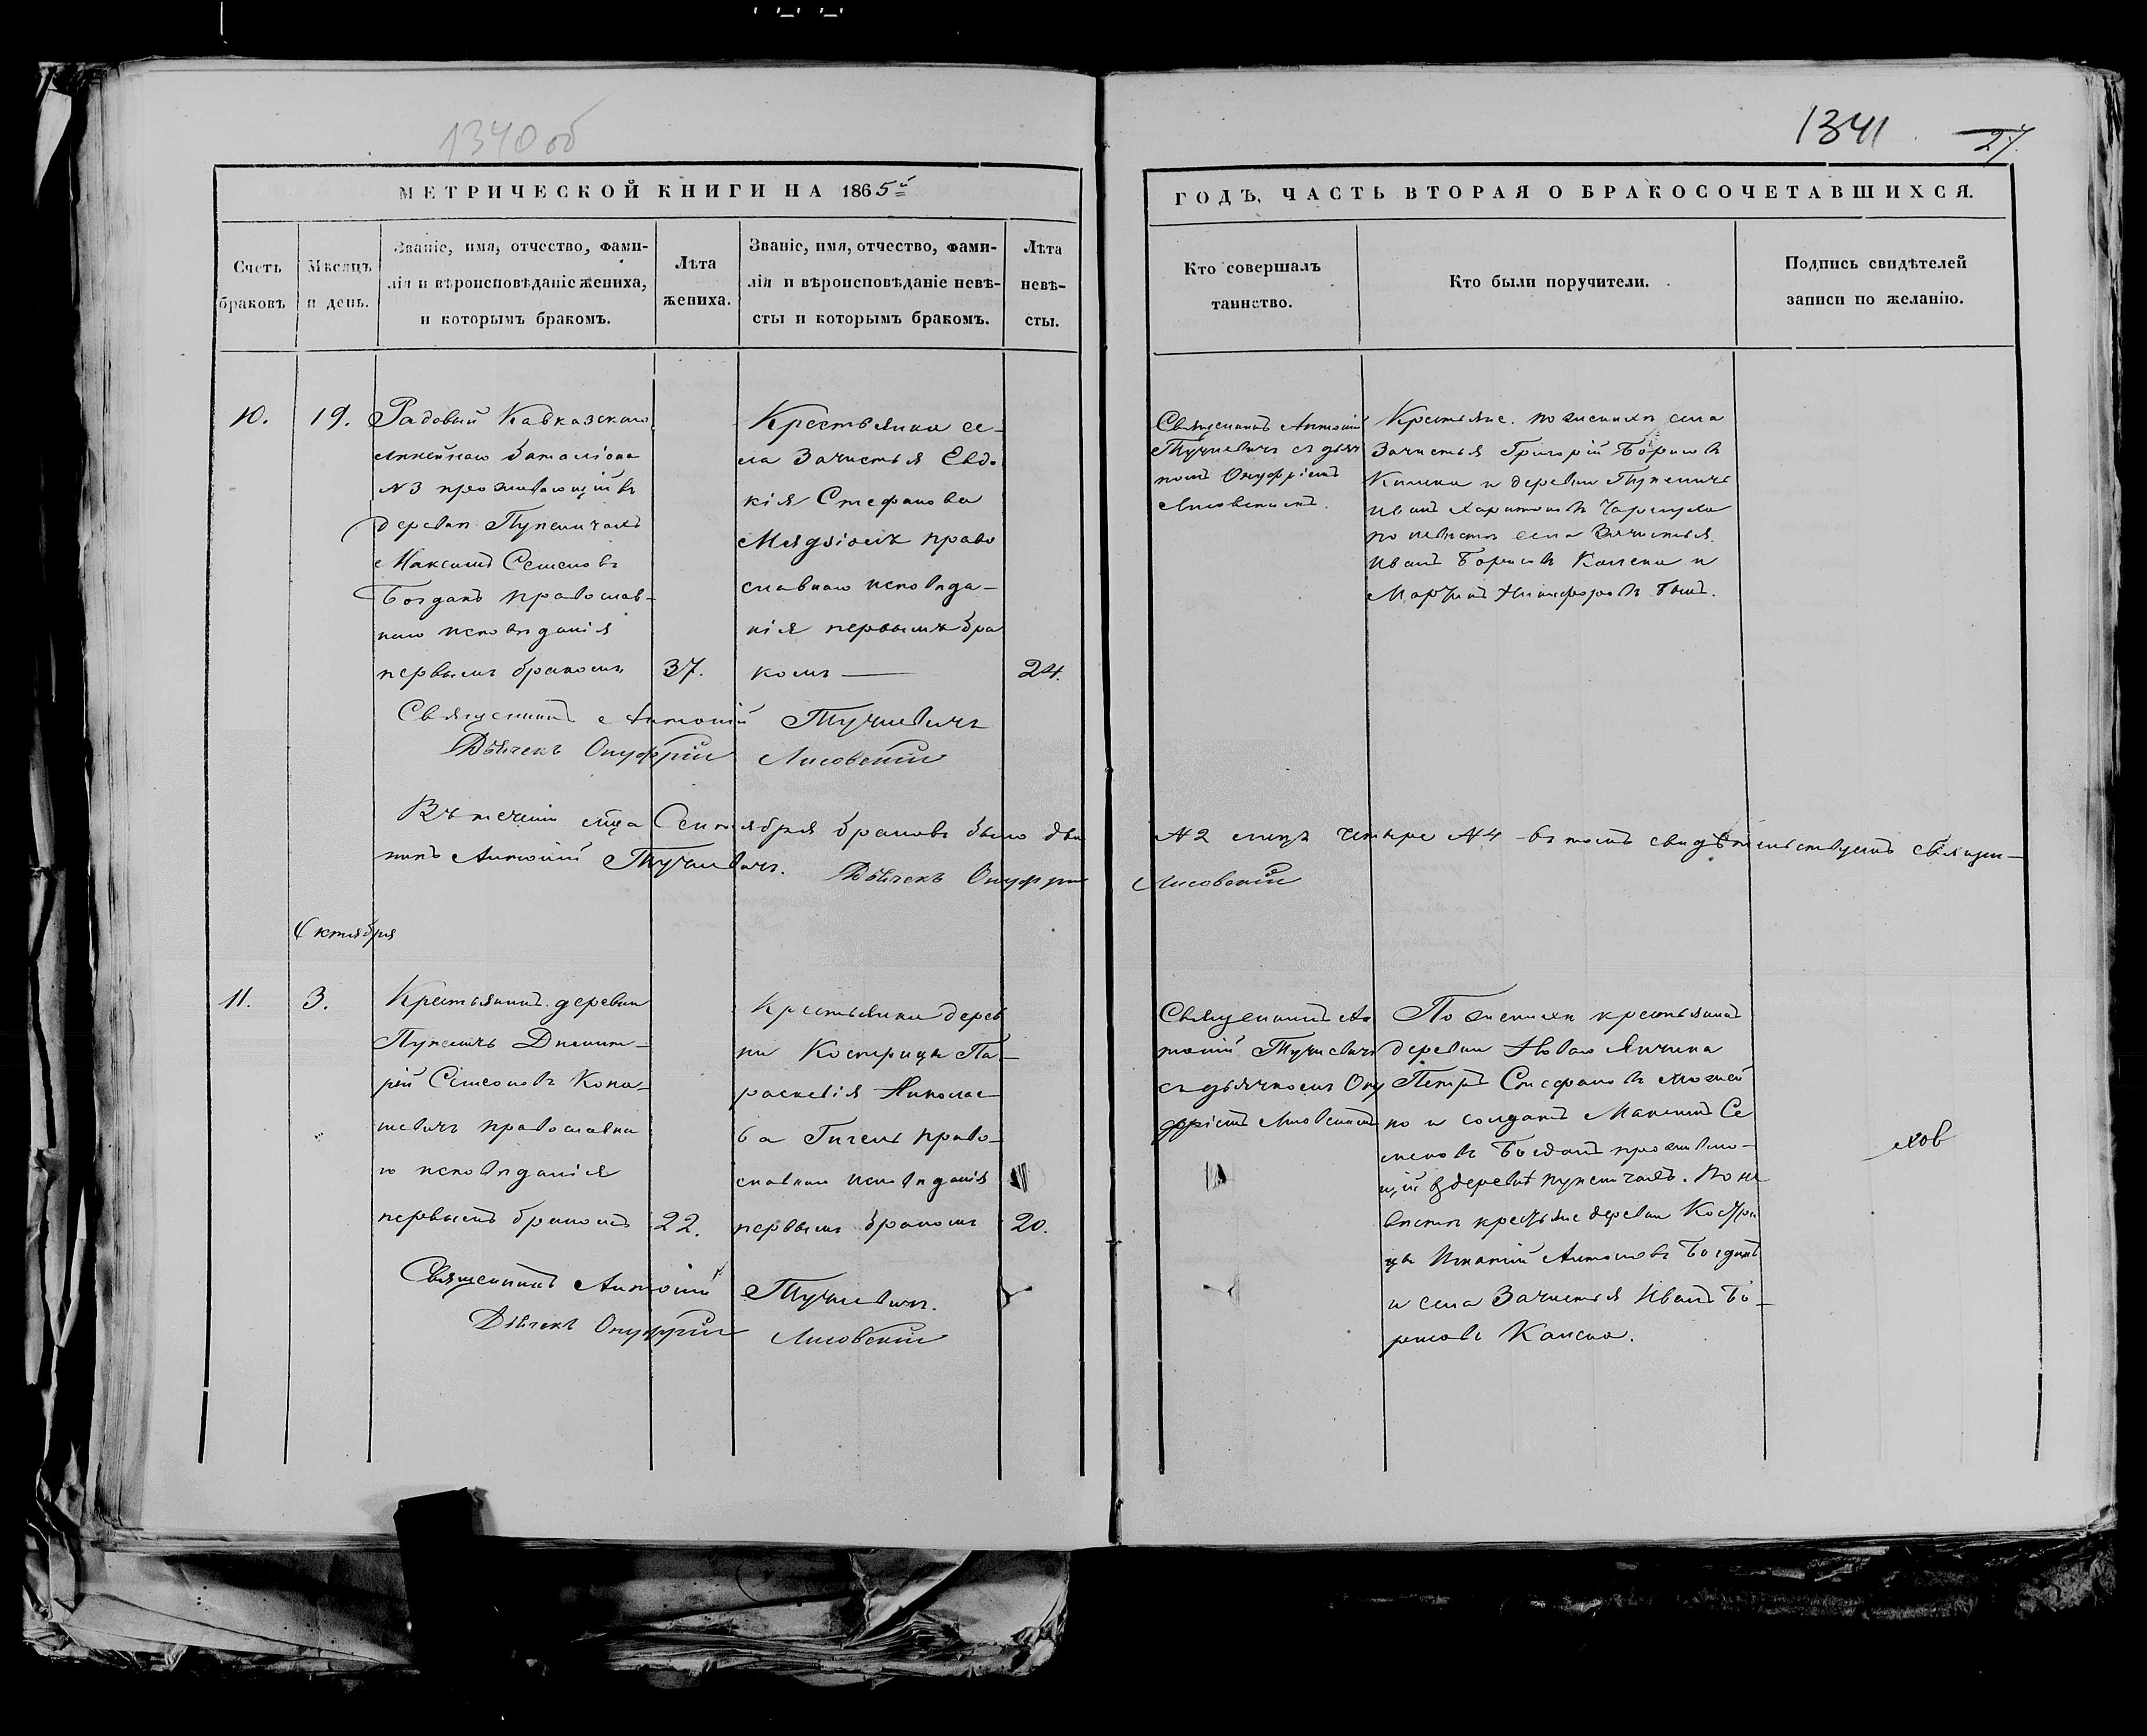 1340 об
1341
27.
МЕТРИЧЕСКОЙ КНИГИ НА 1865й
ГОДЪ, ЧАСТЬ ВТОРАЯ О БРАКОСОЧЕТАВШИХСЯ.
Счетъ
браковъ
Мѣсяцъ
и день.
Званіе, имя, отчество, фами-
лія и вѣроисповѣданіе жениха,
и которымъ бракомъ.
Лѣта
жениха.
Званіе, имя, отчество, фами-
лія и вѣроисповѣданіе невѣ-
сты и которымъ бракомъ.
Лѣта
невѣ-
сты.
Кто совершалъ
таинство.
Кто были поручители.
Подпись свидѣтелей
записи по желанію.
10.
19.
Рядовый Кавказскаго
линейнаго баталіона
№3 проживающій въ
деревнѣ Пупеличахъ
Максимъ Семеновъ
Богданъ православ-
наго исповѣданія
первымъ бракомъ
37.
Крестьянка се-
ла Зачистья Евдо
кія Стефанова
право
славнаго исповѣда-
нія первымъ бра
комъ
24.
Священникъ Антоній
Тучневичъ съ дьяч
комъ Онуфріемъ
Лисовскимъ.
Крестьяне. по женихѣ села
Зачистья Григорій Борисовъ
и деревни Пупеличъ
Иванъ Харитоновъ
по невѣстѣ села Зачистья
Иванъ Борисовъ и
Мартинъ Никифоровъ
Священникъ Антоній Тучневичъ
Дьячекъ Онуфрій Лисовскій
Въ теченіи мѣсяца Сентября браковъ было два №2 лицъ четыре №4 въ томъ свидѣтельствуемъ священ-
никъ Антоній Тучневичъ. Дьячекъ Онуфрій Лисовскій
Октября
11.
3.
Крестьянинъ деревни
Пупеличъ Дмит-
рій Симеоновъ Кона-
шевичъ православна
го исповѣданія
первымъ бракомъ
22.
Крестьянка дерев
ни Кострицы Па-
раскевія Николае-
ва право-
славнаго исповѣданія
первымъ бракомъ
20.
Священникъ Ан
тоній Тучневичъ
съ дьячкомъ Ону
фріемъ Лисовскимъ
По женихѣ крестьянинъ
деревни Новаго Янчина
Петръ Стефановъ
но и солдатъ Максимъ Се
меновъ Богданъ проживаю-
щій въ деревнѣ Пупеличахъ. По не
вѣстѣ крестьяне деревни Костри
цы Игнатій Антоновъ Богданъ
и села Зачистья Иванъ Бо-
рисовъ
Священникъ Антоній Тучневичъ.
Дьячекъ Онуфрій Лисовскій